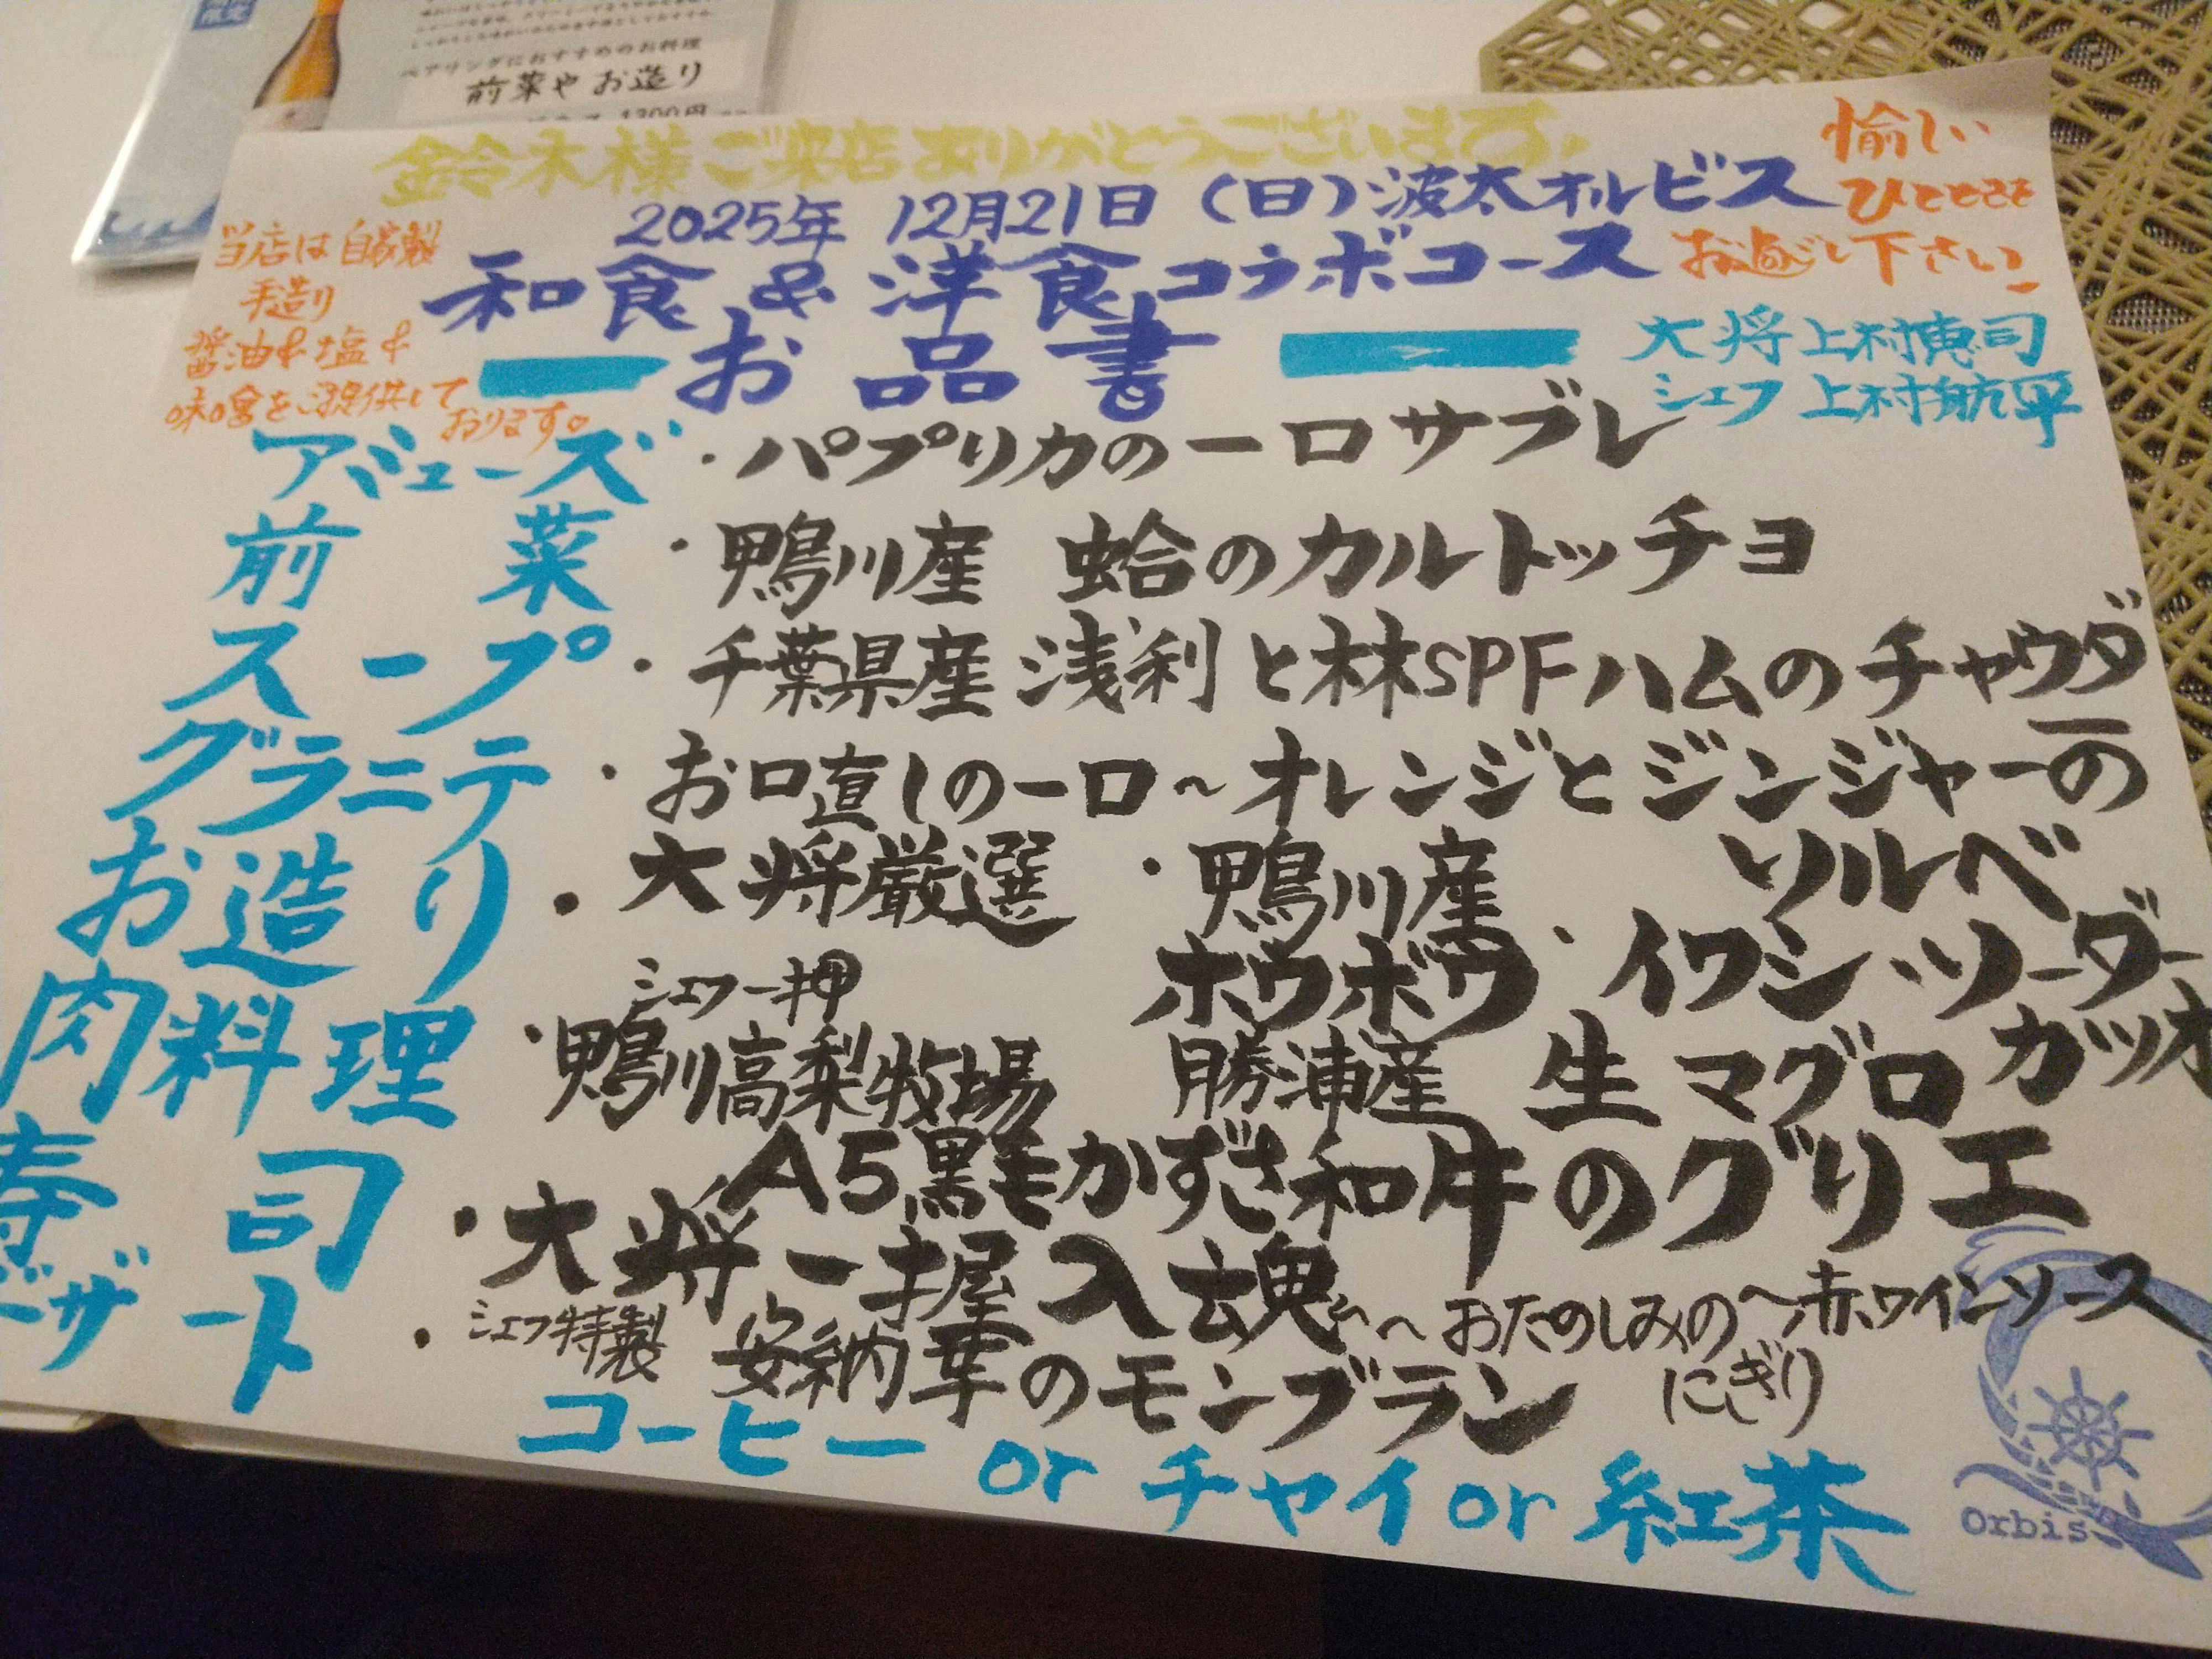 限定
ペアリングにおすすめのお料理
前菜やお造り
1300円
鈴木様ご来店ありがとうございます。
2025年 12月21日(日)波太オルビス
和食&洋食コラボコース
お品書
愉しい
ひとときを
お過ごし下さい
当店は自家製
手造り
醤油&塩&
味噌をご提供して
おります。
大将 上村恵司
シェフ 上村航平
アミューズ ・パプリカの一口サブレ
前菜 ・鴨川産 蛤のカルトッチョ
スープ ・千葉県産 浅利と林SPFハムのチャウダー
グラニテ ・お口直しの一口~オレンジとジンジャーの
ソルベ
お造り ・大将厳選 ・鴨川産
ホウボウ ・イワシ・ソーダー
ガツオ
勝浦産 生マグロ
肉料理 シェフ一押
・鴨川高梨牧場
A5黒毛かずさ和牛のグリエ
~赤ワインソース
寿司 ・大将一握入魂
~おたのしみの
にぎり
デザート ・シェフ特製 安納芋のモンブラン
コーヒー or チャイ or 紅茶
Orbis